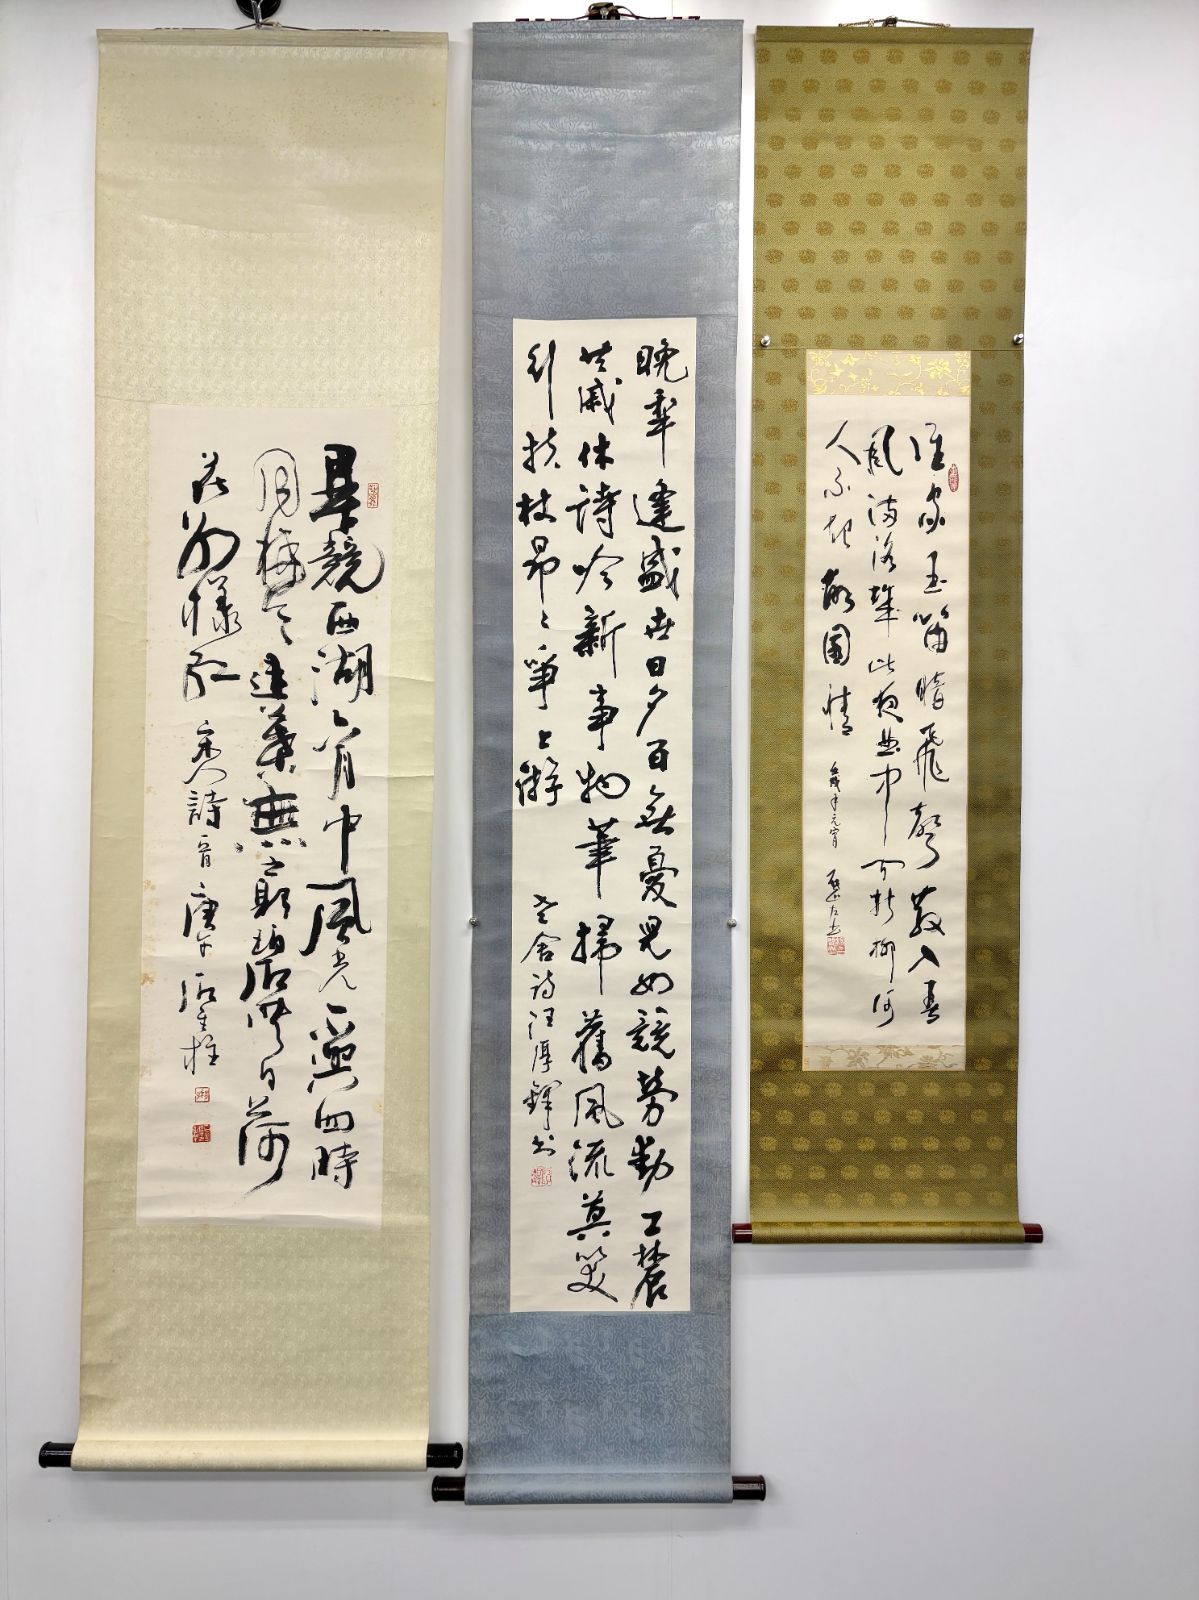 誰家玉笛暗飛聲散入春
風滿洛城此夜曲中聞折柳何
人不起故園情 壬戌年元宵
晚年逢盛世日夕百無憂兒女競勞動工農
共戚休詩吟新事物筆掃舊風流莫笑
行扶杖昂々爭上游 老舍詩汪厚鐸書
畢競西湖六月中風光不與四時
同接天蓮葉無窮碧映日荷
花別樣紅 宋人詩一首 庚午